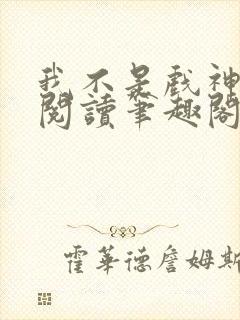 我不是戲神
閱讀筆趣閣
霍華德詹姆斯